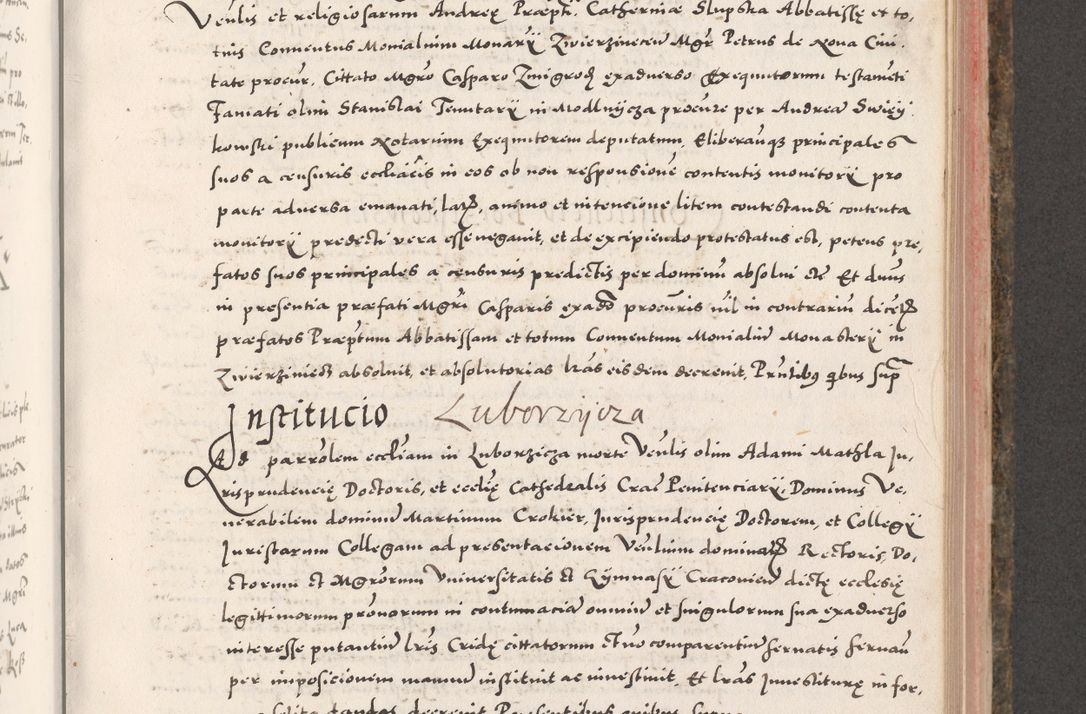 Venlis et religiosarum Andreę Præpti, Catherinæ Slupska Abbatissę et to-
tius Conventus Monialium Monarÿ Zwierzinecen Mgr Petrus de Nova Civi-
tate procur. Cittato Mgro Casparo Zmigrod exadverso Exequutorum testamēti
Famati olim Stanislai Tenutarÿ in Modlnÿcza procure per Andream Swięÿ-
kowski publicum Notarium Exequutorem deputatum, Eliberavqȝ principales
suos a censuris eccliacis in eos ob non responsionē contentis monitorÿ pro
parte adversa emanati, animo et intencione litem contestandi contenta
monitorÿ predicti vera esse negavit, et de excipiendo protestatus est, petens pre-
fatos suos principales a censuris predictis per dominū absolvi etc Et dnus
in presentia præfati Mgri Casparis exadv procuris nil in contrariū dicen
præfatos Præptum Abbatissam et totum Conventum Monialium Monasterÿ in
Zwierziniec absolvit, et absolutorias lras eisdem decrevit, Pntibus qbus supra
Institucio Luborzÿcza
Ad parrolem eccliam in Luborzicza morte Venlis olim Adami Mathla Ju-
risprudencię Doctoris, et ecclię Cathedralis Crac Penitenciarÿ, Dominus Ve-
nerabilem dominum Martinum Crokier, Jurisprudencię Doctorem, et Collegÿ
Juristarum Collegam ad presentacionem Venlium dominor Rectoris, Do-
ctorum et Mgrorum Universitatis et Gÿmnasÿ Cracovien dictę ecclesię
legittimorum pronorum in contumaciam omnium et singulorum sua exadverso
interesse putantium lris Cridę cittatorum etc non comparentium servatis servan
per imposicionem manuum instituit ac investivit, Et lras Investiturę in for-
solita dandas decrevit Presentibus quibus supra